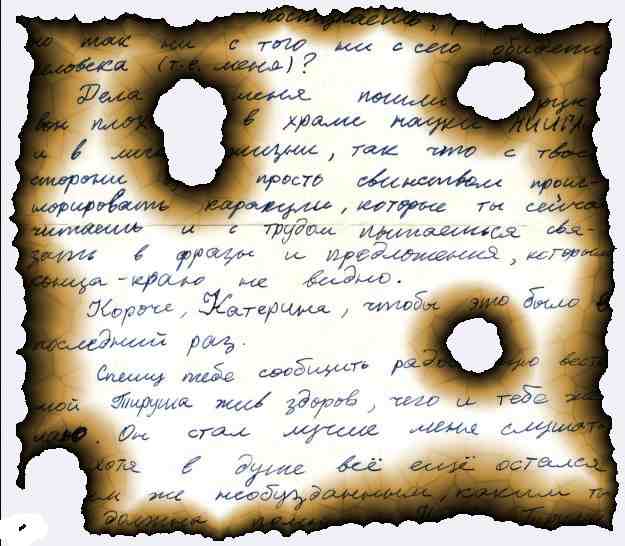 поступаешь,
но так ни с того ни с сего обидеть
человека (т.е. меня)?
Дела меня пошли
вон плохо в храме науки
и в жизни, так что с твоей
стороны просто свинством проиг-
норировать каракули, которые ты сейчас
читаешь и с трудом пытаешься свя-
зать в фразы и предложения, которым
конца-краю не видно.
Короче, Катерина, чтобы это было в
последний раз.
Спешу тебе сообщить весть
мой Тируша жив здоров, чего и тебе же
лаю. Он стал лучше меня слушать
хотя в душе всё ещё остался
же необузданным, каким ты
должна